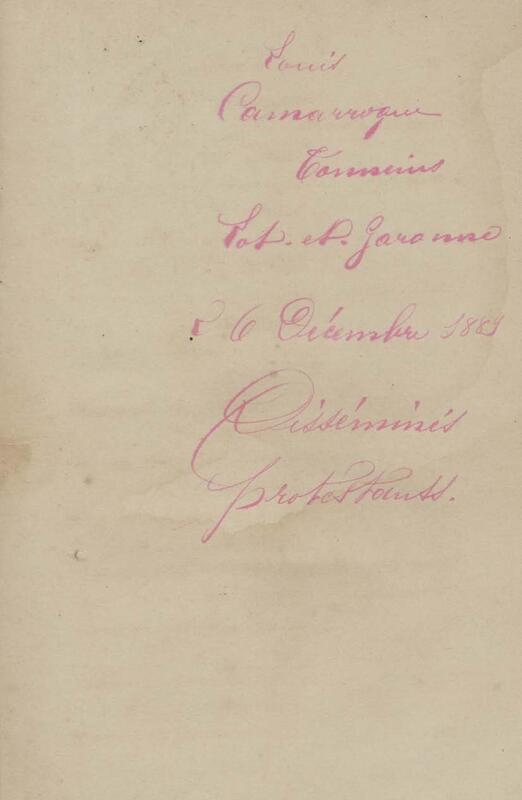 Louis
Camarroque
Tonneins
Lot-et-Garonne
6 Décembre 1889
Disséminés
protestants.